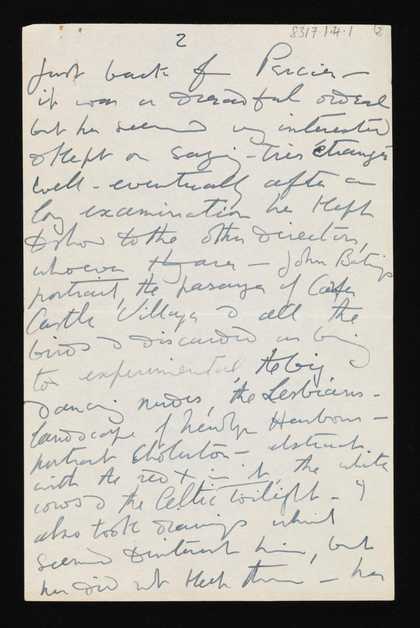 2
8317.1.4.1
Just back f Percier –
it was a dreadful ordeal
but he seemed very interested
& kept on saying – tres etrange
well – eventually after a
long examination he kept
to show to the other directors,
whoever they are – John
portrait, the passage of
Castle Village & all the
birds & discarded as being
too experimental the big
Dancing nudes, the Lesbians –
landscape of Newlyn Harbour –
portrait – abstract
with the red X in it, the white
cows & the Celtic Twilight – I
also took drawings which
seemed to interest him, but
he did not keep them – he